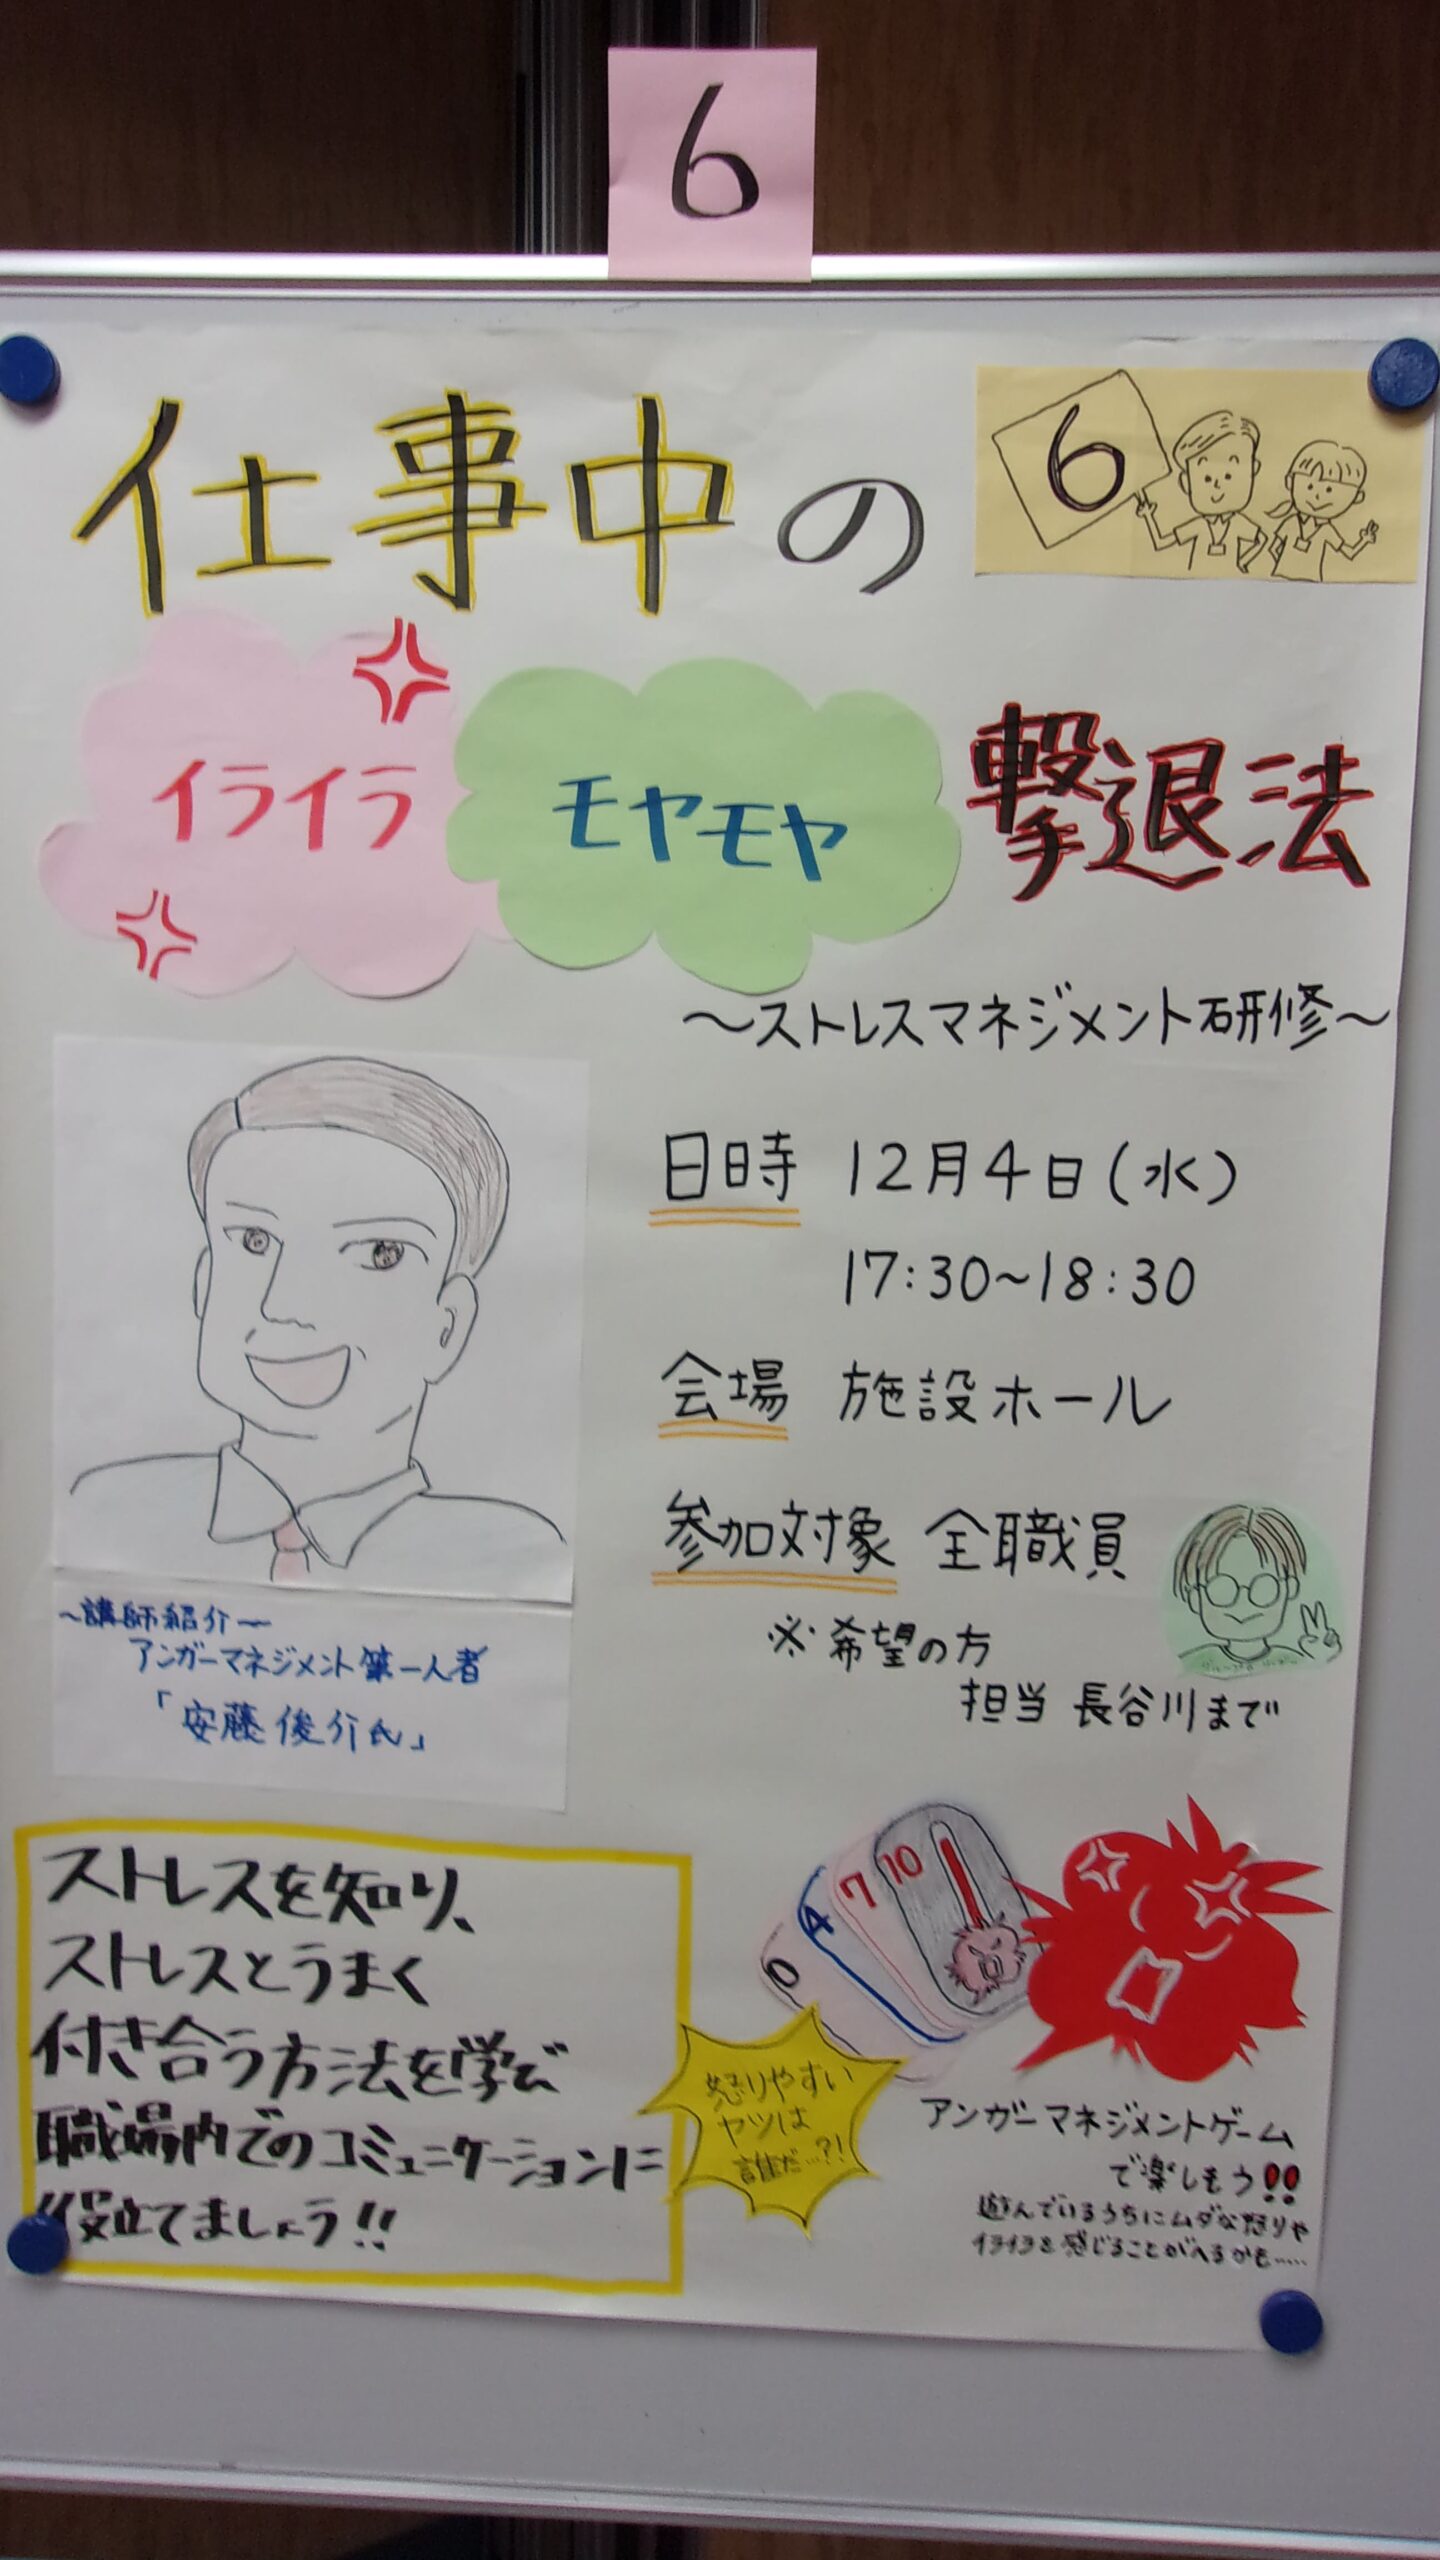 6
仕事中の
6
イライラ
モヤモヤ
撃退法
～ストレスマネジメント研修～
日時 12月4日(水)
17:30～18:30
会場 施設ホール
参加対象 全職員
※希望の方
担当 長谷川まで
～講師紹介～
アンガーマネジメント第一人者
「安藤俊介氏」
ストレスを知り、
ストレスとうまく
付き合う方法を学んで
職場内でのコミュニケーションに
役立てましょう!!
0
4
7
10
怒りやすい
ヤツは
誰だ…?!
アンガーマネジメントゲーム
で楽しもう!!
遊んでいるうちにムダな怒りや
イライラを感じることがへるかも……